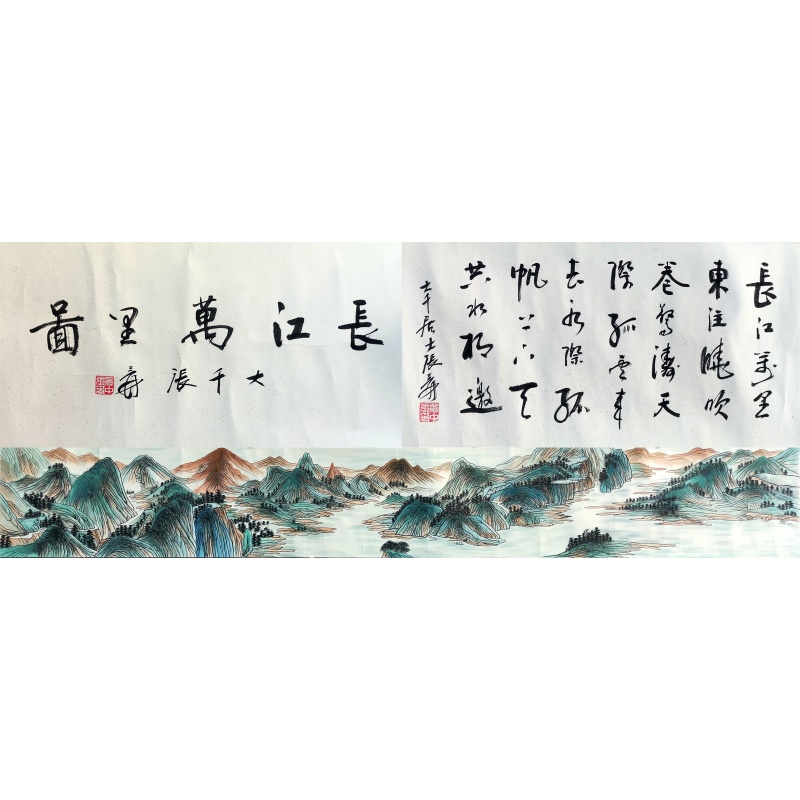 長江萬里圖
大千張爰
長江萬里
東注曉吹
卷驚濤天
際孤雲來
去水際孤
帆上下天
共水相邀
大千居士張爰